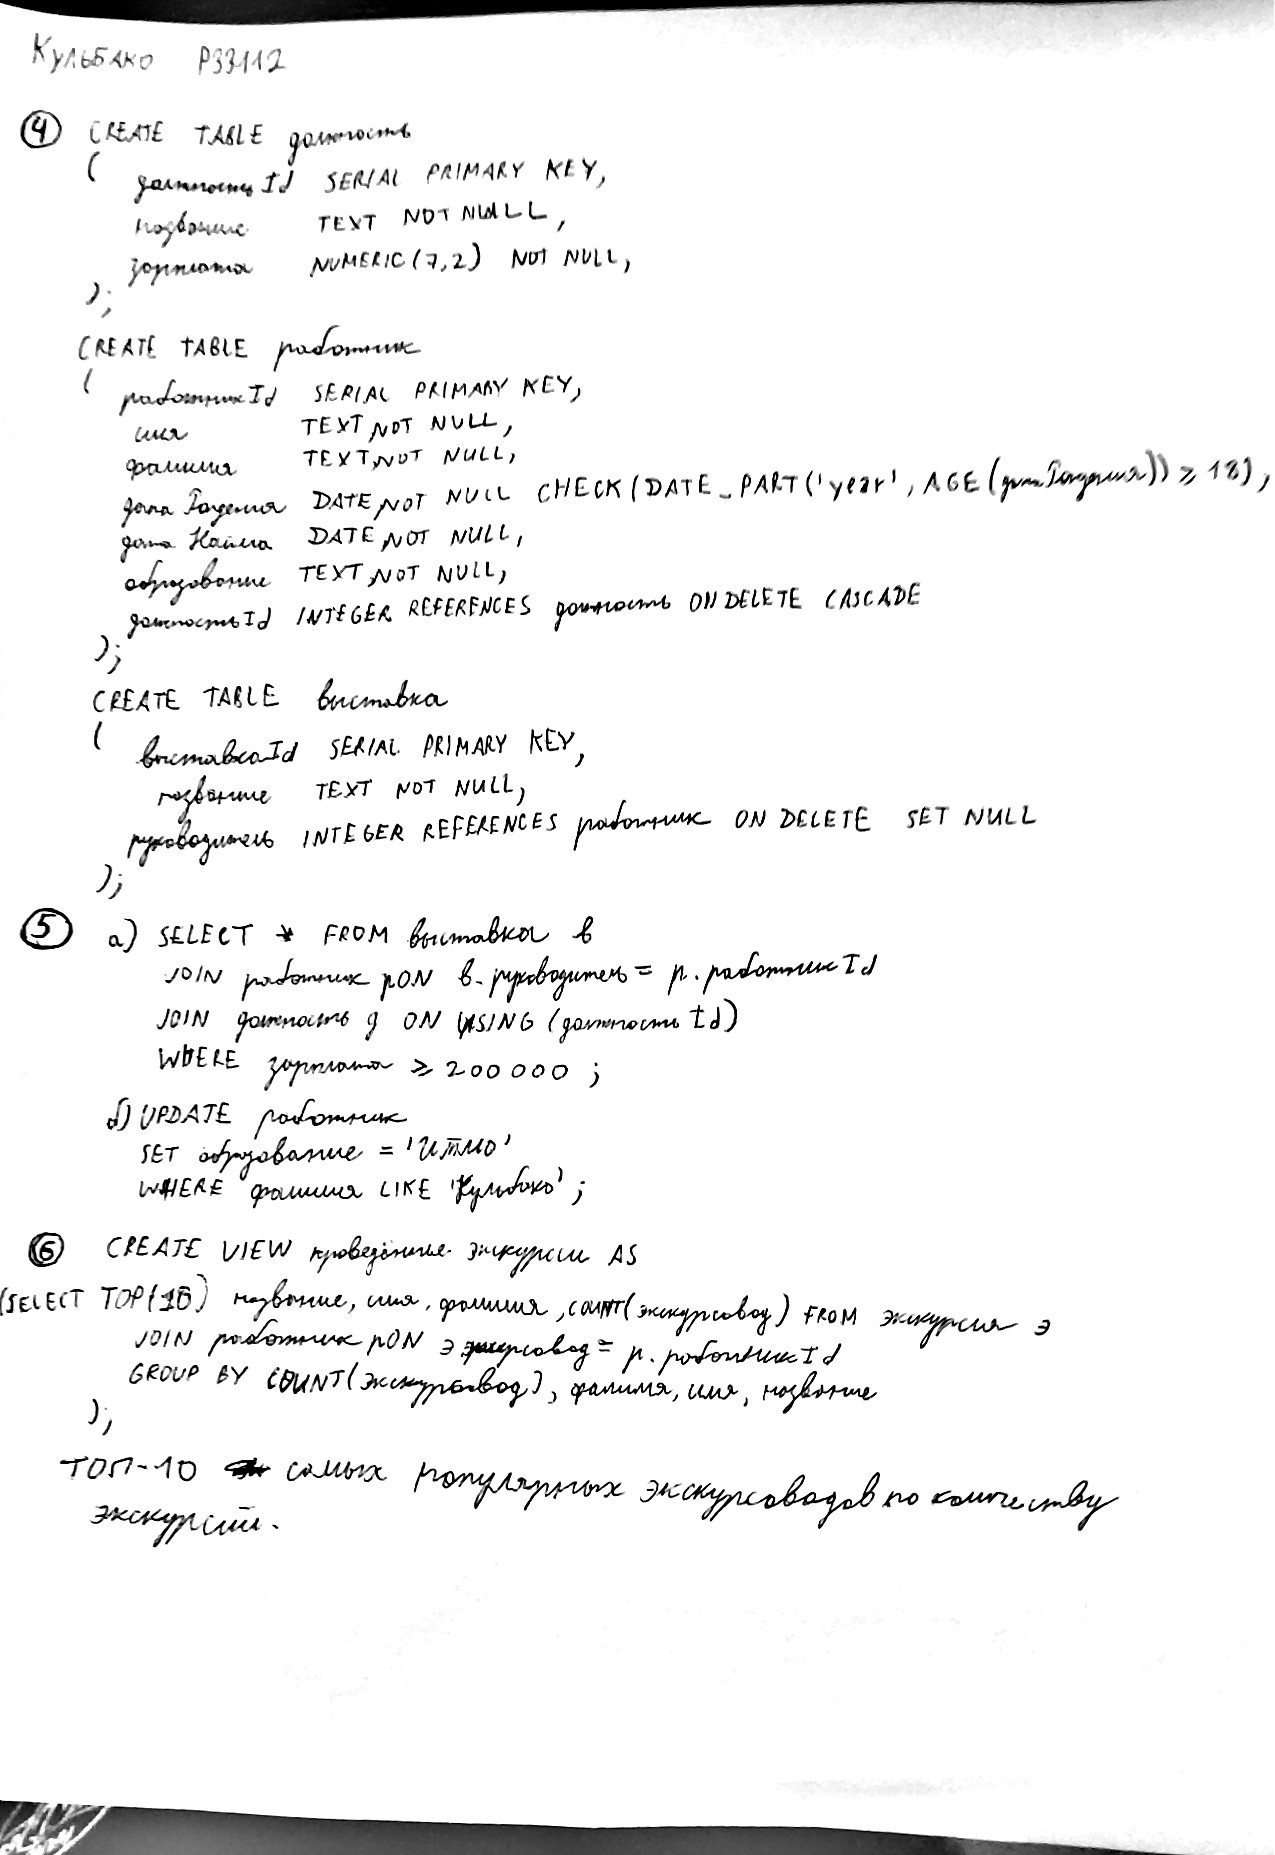 Кульбако P33112
4 CREATE TABLE должность
(
должностьId SERIAL PRIMARY KEY,
название TEXT NOT NULL,
зарплата NUMERIC(7,2) NOT NULL,
);
CREATE TABLE работник
(
работникId SERIAL PRIMARY KEY,
имя TEXT NOT NULL,
фамилия TEXT NOT NULL,
дата Рождения DATE NOT NULL CHECK(DATE_PART('year', AGE(дата Рождения)) ≥ 18),
дата Найма DATE NOT NULL,
образование TEXT NOT NULL,
должностьId INTEGER REFERENCES должность ON DELETE CASCADE
);
CREATE TABLE выставка
(
выставкаId SERIAL PRIMARY KEY,
название TEXT NOT NULL,
руководитель INTEGER REFERENCES работник ON DELETE SET NULL
);
5 а) SELECT * FROM выставка в
JOIN работник р ON в.руководитель = р.работникId
JOIN должность д ON USING (должностьId)
WHERE зарплата ≥ 200000;
б) UPDATE работник
SET образование = 'ИТМО'
WHERE фамилия LIKE 'Кульбако';
6 CREATE VIEW проведённые экскурсии AS
(SELECT TOP(10) название, имя, фамилия, COUNT(экскурсовод) FROM экскурсия э
JOIN работник р ON э экскурсовод = р.работникId
GROUP BY COUNT(экскурсовод), фамилия, имя, название
);
ТОП-10 самых популярных экскурсоводов по количеству
экскурсий.